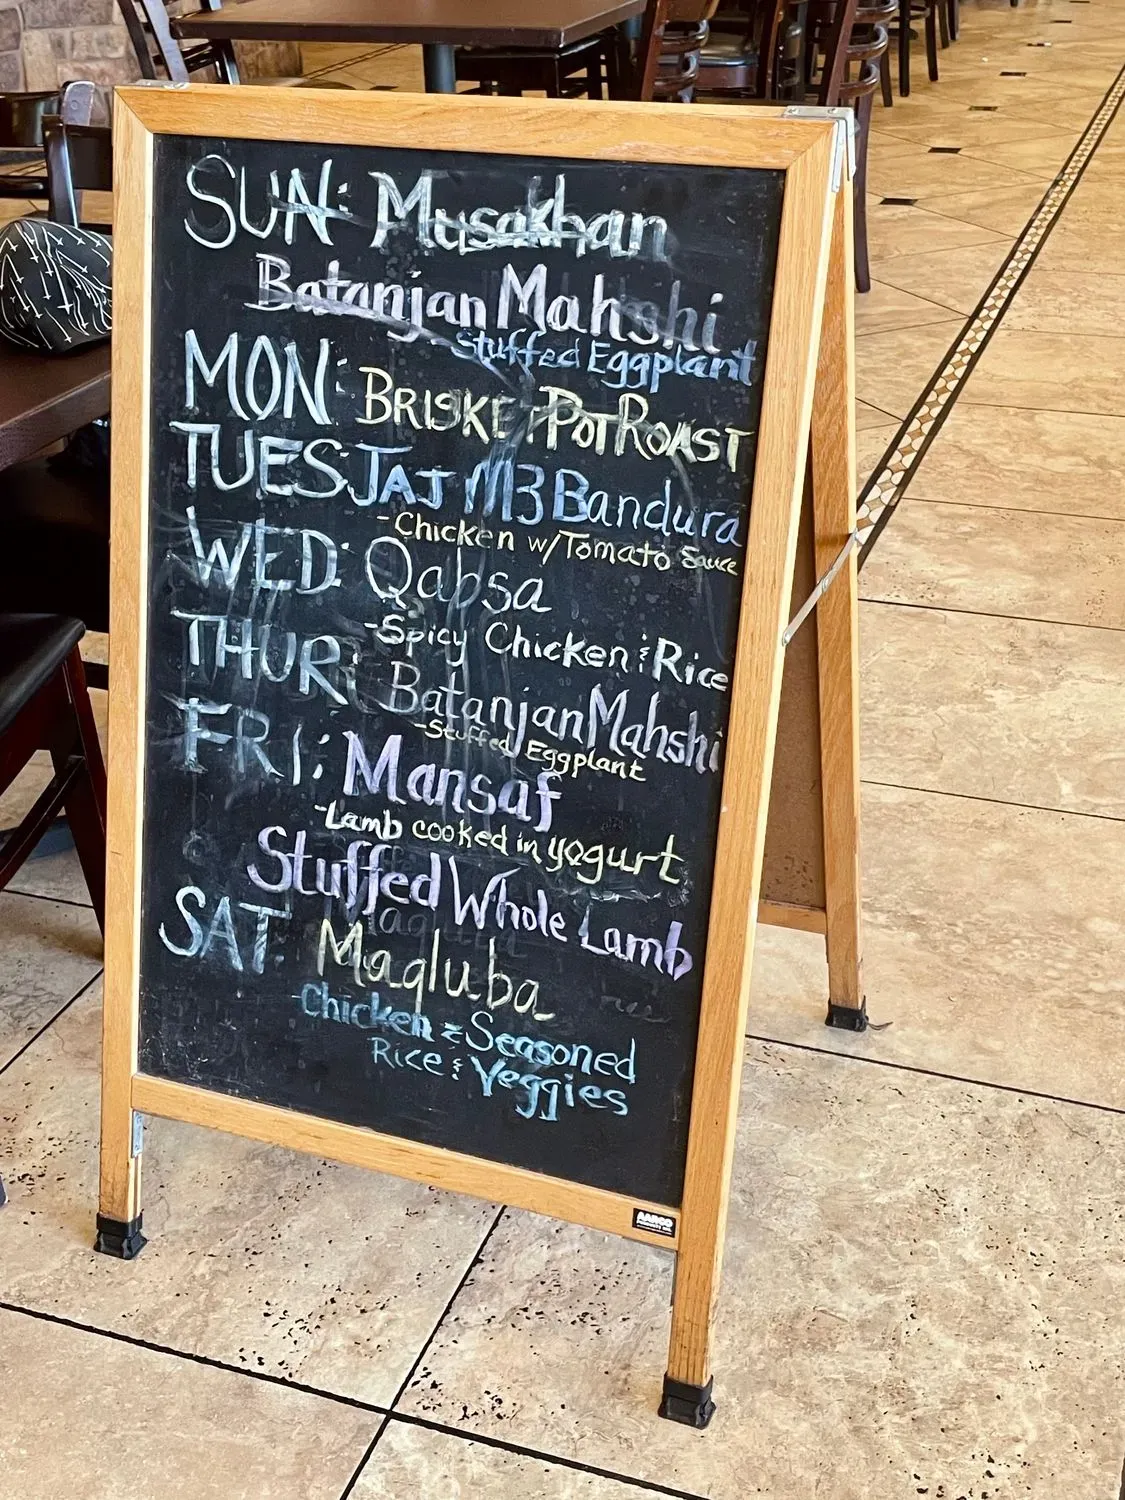 SUN: Musakhan
Batanjan Mahshi
Stuffed Eggplant
MON: BRISKET POT ROAST
TUES: JAJ M3 Bandura
-Chicken w/Tomato Sauce
WED: Qabsa
-Spicy Chicken & Rice
THUR: Batanjan Mahshi
-Stuffed Eggplant
FRI: Mansaf
-Lamb cooked in yogurt
Stuffed Whole Lamb
SAT: Maqluba
Chicken & Seasoned
Rice & Veggies
AARCO